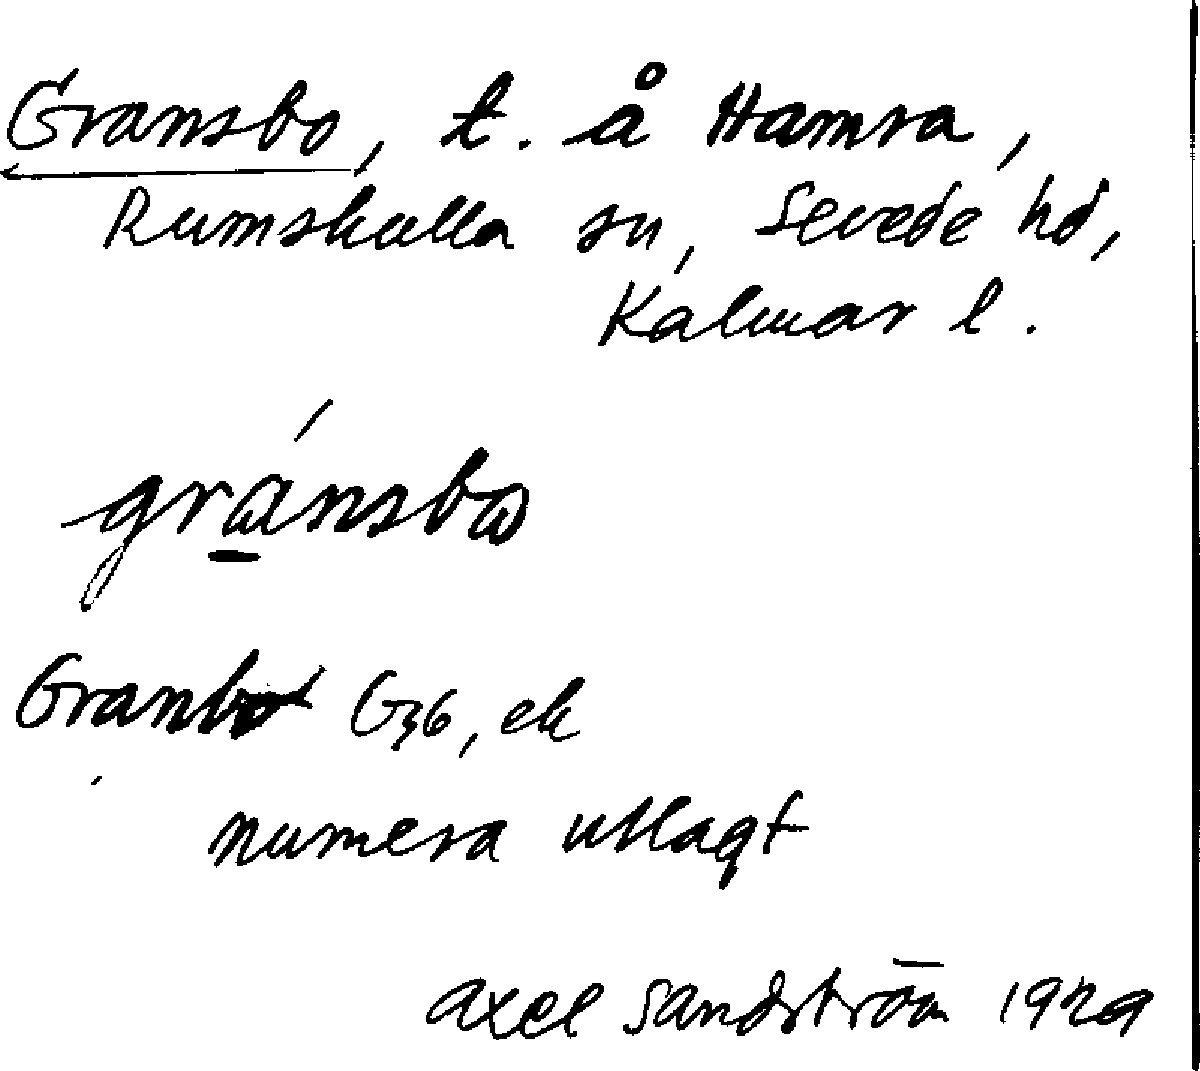 Gransbo, t. å Hamra,
Rumskulla sn, Sevede hd,
Kalmar l.
gránsbω
Granbo G36, ek
numera utlagt
Axel Sandström 1929